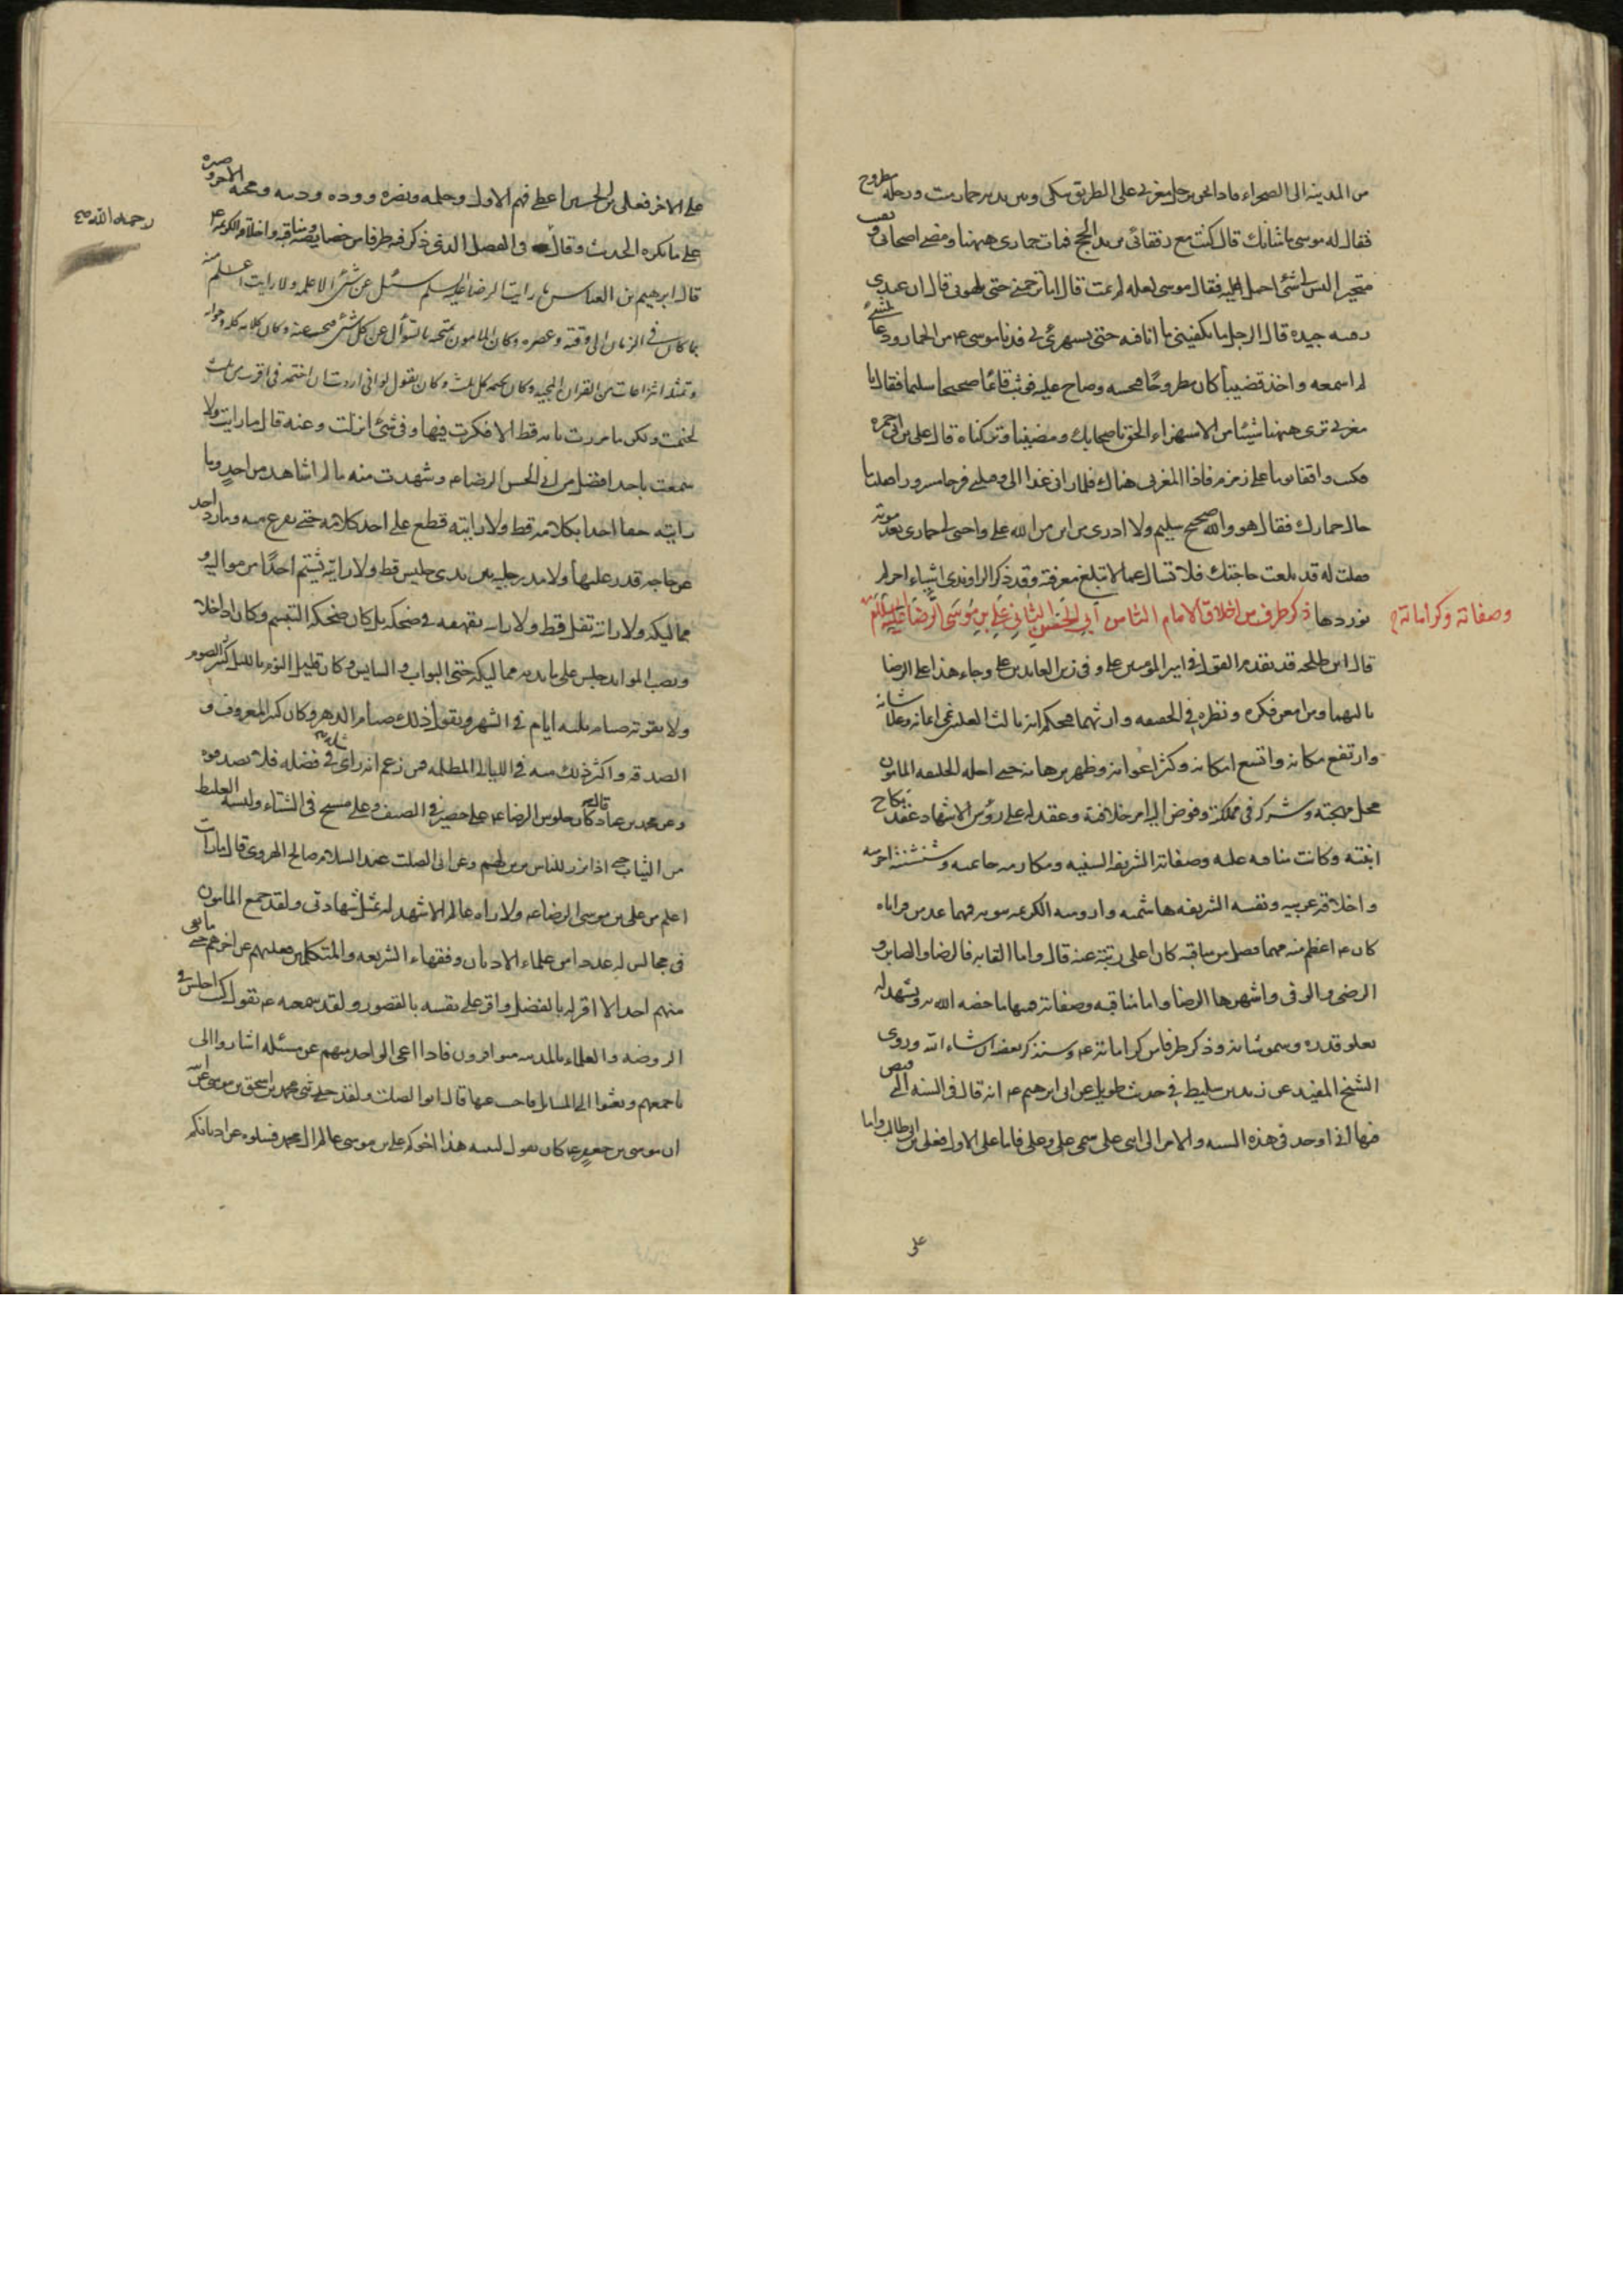 من المدينه الى الصحراء فاذا نحن برجل مغربى على الطريق يبكى وبين يديه حمار ميت ورحله مطروح
فقال له موسى ما شانك قال كنت مع رفقائى نريد الحج فمات حمارى ههنا ومضى اصحابى وبقيت
متحير اليس لى شئ احمل عليه فقال موسى لعله لم يمت قال اما ترحمنى حتى تلهو بى قال ان عندى
رقيه جيده قال الرجل ما يكفينى ما انا فيه حتى تستهزئ بى فدنا موسى ع من الحمار ودعا بشئ
لم اسمعه واخذ قضيبا كان مطروحا فنخسه وصاح عليه فوثب قائما صحيحا سليما فقال يا
مغربى ترى ههنا شيئا من الاستهزاء الحق باصحابك ومضينا وتركناه قال على بن ابى حمزه
فكنت واقفا يوما على زمزم فاذا المغربى هناك فلما رانى غدا الى وقبلنى فرحا مسرورا فقلت ما
حال حمارك فقال هو والله صحيح سليم ولا ادرى من اين من الله على واحيى لى حمارى بعد موته
فقلت له قد بلغت حاجتك فلا تسال عما لا تبلغ معرفته وقد ذكر الراوندى اشياء اخر لم
نوردها ذكر طرف من اخلاق الامام الثامن أبى الحسن الثانى على بن موسى الرضا عليه السلام
وصفاته وكراماته
قال ابن طلحه قد تقدم القول فى امير المومنين على وفى زين العابدين على وجاء هذا على الرضا
ثالثهما ومن امعن فكره ونظره فى الحقيقه وارثهما فحكم انه ثالث العليه نمى ايمانه وعلا شانه
وارتفع مكانه واتسع امكانه وكثر اعوانه وظهر برهانه حتى احله الخليفه المامون
محل مهجته وشركه فى مملكته وفوض اليه امر خلافته وعقد له على رؤس الاشهاد عقد نكاح
ابنته وكانت مناقبه عليه وصفاته الشريفه السنيه ومكارمه حاتميه وشنشنته اخزميه
واخلاقه عربيه ونفسه الشريفه هاشميه وارومته الكريمه نبويه فمهما عد من مزاياه
كان ع اعظم منه ومهما فصل من مناقبه كان اعلى رتبة عنه قال واما القابه فالرضا والصابر و
الرضى والوفى واشهرها الرضا واما مناقبه وصفاته فمنها ما خصه الله به ويشهد له
بعلو قدره وسمو شانه وذكر طرفا من كراماته ع وسنذكر بعضها ان شاء الله وروى
الشيخ المفيد عن زيد بن سليط فى حديث طويل عن ابى ابرهيم ع انه قال فى السنه التى قبض
فيها انى اوخذ فى هذه السنه والامر الى ابنى على سمى على وعلى فاما على الاول فعلى بن ابى طالب واما
على
على الاخر فعلى بن الحسين اعطى فهم الاول وحلمه ونصره ووده ودينه ومحنته الاخر وصبره
على ما يكره الحديث وقال فى الفصل الذى ذكر فيه طرفا من خصايصه ومناقبه واخلاقه الكريمه ع
رحمه الله
قال ابرهيم بن العباس ما رايت الرضا عليه السلم سئل عن شئ الا علمه ولا رايت اعلم منه
بما كان فى الزمان الى وقته وعصره وكان المامون يمتحنه بالسؤال عن كل شئ فيجيب عنه وكان كلامه كله وجوابه
وتمثله انتزاعات من القران المجيد وكان يختمه كل ثلث وكان يقول لو انى اردت ان اختمه فى اقرب من ثلث
لختمت ولكن ما مررت بايه قط الا فكرت فيها وفى شئ انزلت وعنه قال ما رايت ولا
سمعت باحد افضل من ابى الحسن الرضا ع وشهدت منه ما لم اشاهد من احد وما
رايته جفا احدا بكلامه قط ولا رايته قطع على احد كلامه حتى يفرغ منه وما رد احد
عن حاجه قدر عليها ولا مد رجليه بين يدى جليس قط ولا رايته يشتم احدا من مواليه و
مماليكه ولا رايته تفل قط ولا رايته يقهقه فى ضحكه بل كان ضحكه التبسم وكان اذا خلا
ونصب الموايد جلس على مايدته مماليكه حتى البواب والسايس وكان قليل النوم بالليل كثير الصوم
ولا يفوته صيام ثلثه ايام فى الشهر ويقول ذلك صيام الدهر وكان كثير المعروف و
الصدقه واكثر ذلك منه فى الليالى المظلمه فمن زعم انه راى مثله فى فضله فلا تصدقوه
وعن محمد بن عباد قال كان جلوس الرضا ع على حصير فى الصيف وعلى مسح فى الشتاء ولبسه الغليظ
من الثياب حتى اذا برز للناس تزين لهم وعن ابى الصلت عبد السلام بن صالح الهروى قال ما رايت
اعلم من على بن موسى الرضا ع ولا راه عالم الا شهد له بمثل شهادتى ولقد جمع المامون
فى مجالس له عددا من علماء الاديان وفقهاء الشريعه والمتكلمين فغلبهم عن اخرهم حتى ما بقى
منهم احد الا اقر له بالفضل واقر على نفسه بالقصور ولقد سمعته ع يقول كنت اجلس فى
الروضه والعلماء بالمدينه متوافرون فاذا اعيى الواحد منهم عن مسئله اشاروا الى
باجمعهم وبعثوا الى المسائل فاجيب عنها قال ابو الصلت ولقد حدثنى محمد بن اسحق بن موسى عن ابيه
ان موسى بن جعفر ع كان يقول لبنيه هذا اخوكم على بن موسى عالم ال محمد فسلوه عن اديانكم